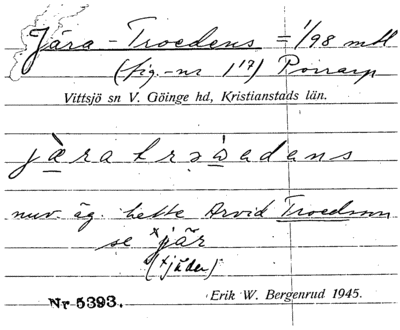 Jära - Troedens = 1/98 mtl
(fig.-nr 1¹⁷) Porrarp
Vittsjö sn V. Göinge hd, Kristianstads län.
nuv. äg. hette Arvid Troedsson
se ˣjär
(ˣjäder)
Nr 5393. Erik W. Bergenrud 1945.